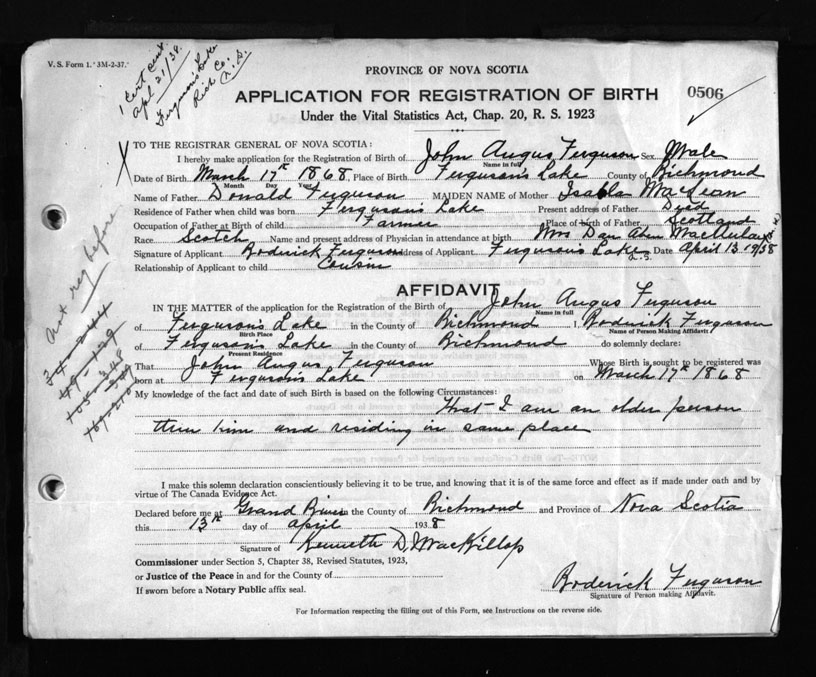 V. S. Form 1. 3M-2-37.
1 Cert sent
Apl 21/38.
Ferguson's Lake
Rich Co.
N. S.
PROVINCE OF NOVA SCOTIA
APPLICATION FOR REGISTRATION OF BIRTH
0506
Under the Vital Statistics Act, Chap. 20, R. S. 1923
TO THE REGISTRAR GENERAL OF NOVA SCOTIA:
I hereby make application for the Registration of Birth of John Angus Ferguson Sex Male
Name in full
Date of Birth March 17th 1868, Place of Birth Ferguson's Lake County of Richmond
Month Day Year
Name of Father Donald Ferguson MAIDEN NAME of Mother Isabla MacLean
Residence of Father when child was born Ferguson's Lake Present address of Father Died
Occupation of Father at Birth of child Farmer Place of birth of Father Scotland
Race Scotch Name and present address of Physician in attendance at birth Mrs Dan Alex MacAulay
Signature of Applicant Roderick Ferguson address of Applicant Ferguson's Lake N.S. Date April 13 1938
Relationship of Applicant to child Cousin
AFFIDAVIT
IN THE MATTER of the application for the Registration of the Birth of John Angus Ferguson
Name in full
of Ferguson's Lake in the County of Richmond I, Roderick Ferguson
Birth Place Name of Person Making Affidavit
of Ferguson's Lake in the County of Richmond do solemnly declare:
Present Residence
That John Angus Ferguson Whose Birth is sought to be registered was
born at Ferguson's Lake on March 17th 1868
My knowledge of the fact and date of such Birth is based on the following Circumstances:
that I am an older person
then him and residing in same place
Not reg before
34-244
49-129
I make this solemn declaration conscientiously believing it to be true, and knowing that it is of the same force and effect as if made under oath and by
virtue of The Canada Evidence Act.
Declared before me at Grand River in the County of Richmond and Province of Nova Scotia
this 13th day of april 1938
Signature of Kenneth D. MacKillop
Commissioner under Section 5, Chapter 38, Revised Statutes, 1923,
or Justice of the Peace in and for the County of
If sworn before a Notary Public affix seal.
Roderick Ferguson
Signature of Person making Affidavit.
For Information respecting the filling out of this Form, see Instructions on the reverse side.